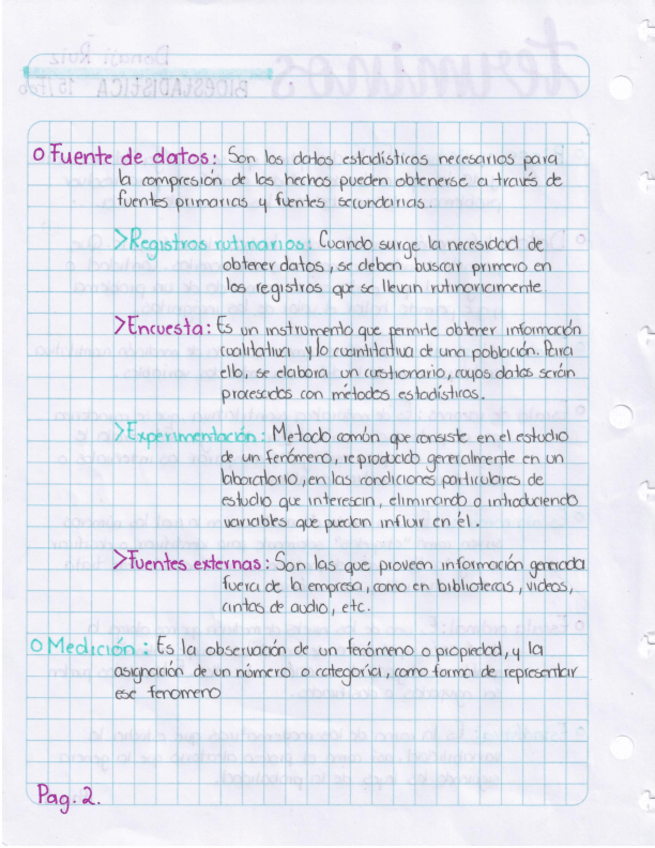 o Fuente de datos: Son los datos estadísticos necesarios para
la compresión de los hechos pueden obtenerse a través de
fuentes primarias y fuentes secundarias.
>Registros rutinarios: Cuando surge la necesidad de
obtener datos, se deben buscar primero en
los registros que se llevan rutinariamente
>Encuesta: Es un instrumento que permite obtener información
cualitativa y/o cuantitativa de una población. Para
ello, se elabora un cuestionario, cuyos datos serán
procesados con métodos estadísticos.
>Experimentación: Metodo común que consiste en el estudio
de un fenómeno, reproducido generalmente en un
laboratorio, en las condiciones particulares de
estudio que interesan, eliminando o introduciendo
variables que puedan influir en él.
>Fuentes externas: Son las que proveen información generada
fuera de la empresa, como en bibliotecas, videos,
cintas de audio, etc.
o Medición: Es la observación de un fenómeno o propiedad, y la
asignación de un número o categoría, como forma de representar
ese fenomeno
Pag. 2.